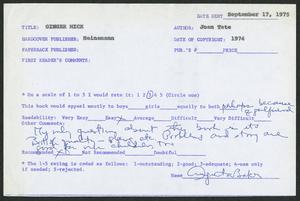 DATE SENT September 17, 1975
TITLE: GINGER MICK AUTHOR: Joan Tate
HARDCOVER PUBLISHER: Heinemann DATE OF COPYRIGHT: 1974
PAPERBACK PUBLISHER: PUB.'S # PRICE
FIRST READER'S COMMENTS:
* On a scale of 1 to 5 I would rate it: 1 2 3 4 5 (Circle one)
This book would appeal mostly to boys girls equally to both perhaps because of girlfriend
Readability: Very Easy Easy Average Difficult Very Difficult
Other Comments:
My only question about this book is its
British sounds - place etc. Problems and story are
good for our children too
Recommended Not Recommended Doubtful
* The 1-5 rating is coded as follows: 1-outstanding; 2-good; 3-adequate; 4-use only
if needed; 5-rejected.
Name Augusta Baker